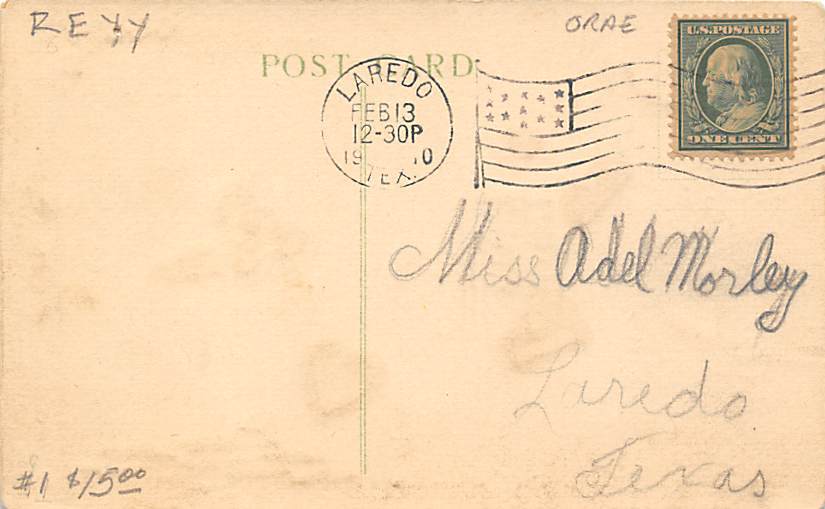 REYY
ORAE
U.S. POSTAGE
ONE CENT
POST CARD
LAREDO
FEB 13
12-30P
19 10
TEX.
Miss Adel Morley
Laredo
Texas
#1 $15.00